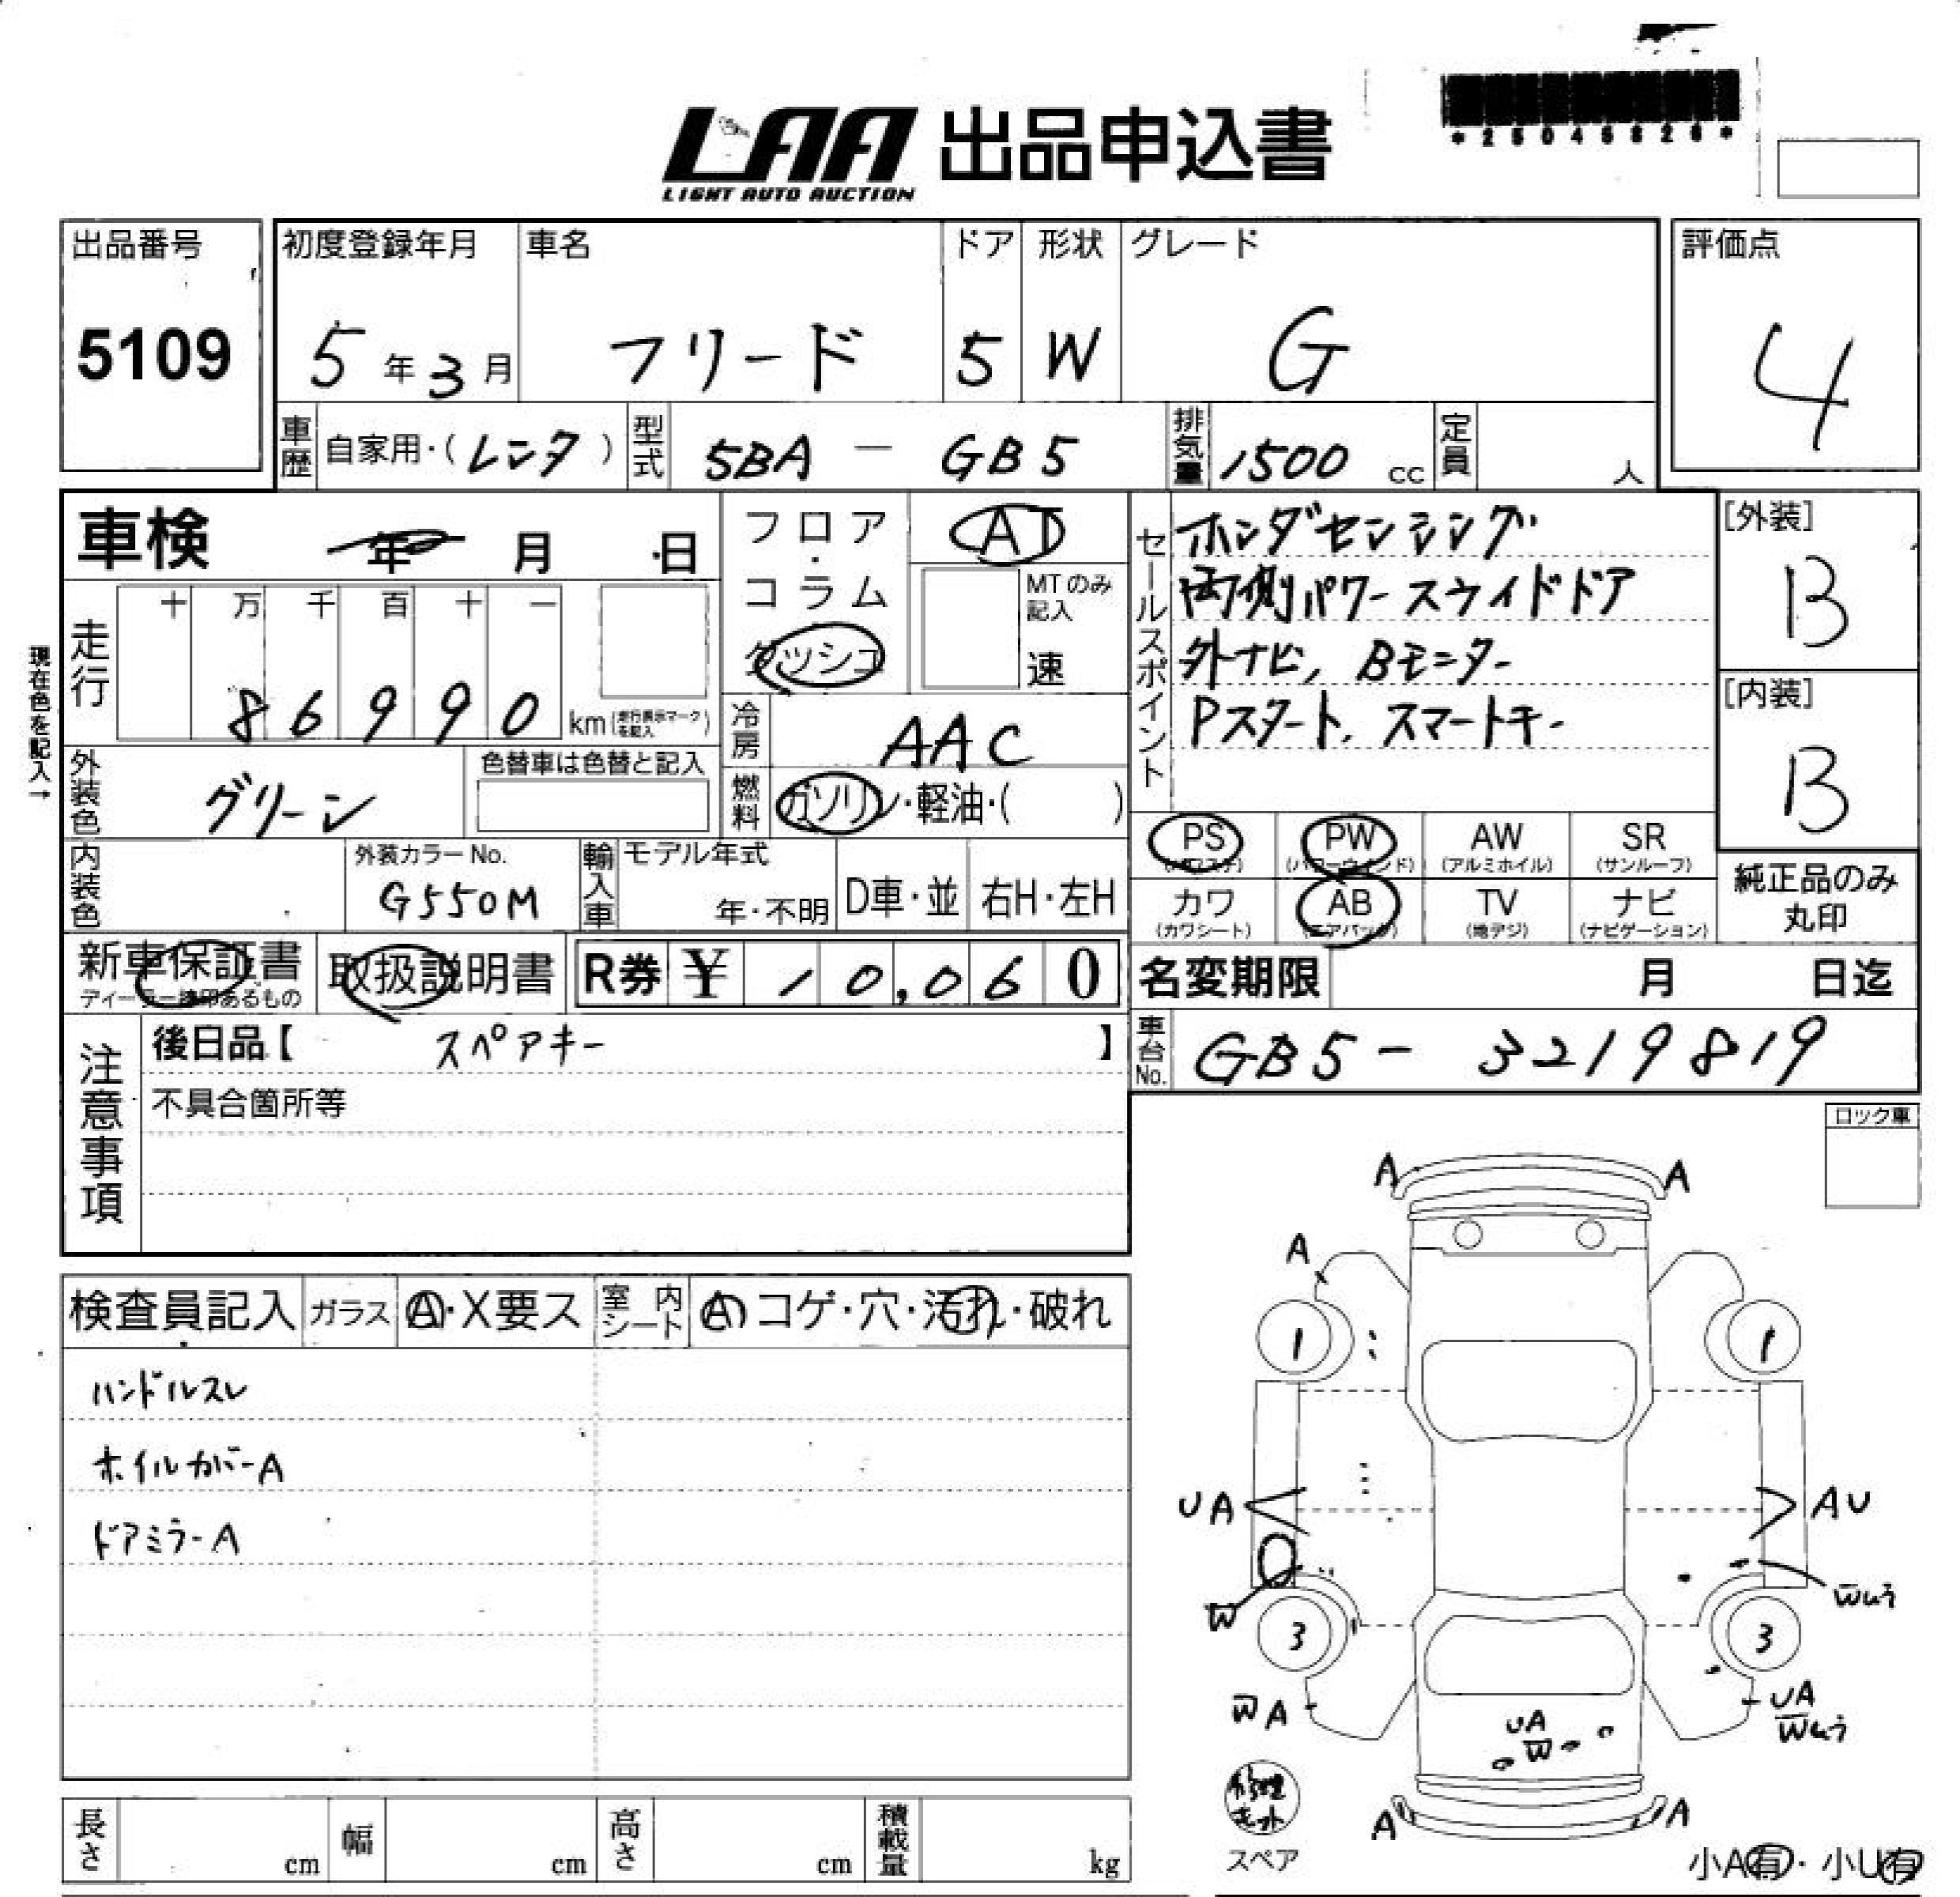 LAA 出品申込書
LIGHT AUTO AUCTION
*25046826*
出品番号 初度登録年月 車名 ドア 形状 グレード 評価点
5109 5年3月 フリード 5 W G 4
車歴 自家用・(レンタ) 型式 5BA - GB5 排気量 1500 cc 定員 人
車検 年 月 日
フロア・コラム ダッシュ
AT
MTのみ記入
速
セールスポイント
ホンダセンシング
両側パワースライドドア
外ナビ, Bモニター
Pスタート, スマートキー
[外装]
B
[内装]
B
現在色を記入→
走行 十 万 千 百 十 一
86990 km(走行表示マークを記入)
冷房 AAC
外装色 グリーン 色替車は色替と記入
燃料 ガソリン・軽油・( )
内装色 外装カラーNo. G550M
輸入車 モデル年式 年・不明 D車・並 右H・左H
PS (パワステ) PW (パワーウインド) AW (アルミホイル) SR (サンルーフ)
カワ (カワシート) AB (エアバッグ) TV (地デジ) ナビ (ナビゲーション)
純正品のみ丸印
新車保証書 ディーラー捺印あるもの 取扱説明書 R券 ¥ 10,060
名変期限 月 日迄
注意事項
後日品【 スペアキー 】
不具合箇所等
車台No. GB5- 3219819
ロック車
検査員記入 ガラス A・X要ス 室内シート A コゲ・穴・汚れ・破れ
ハンドルスレ
ホイルカバーA
ドアミラーA
A A
A
1 1
UA AU
W Wムラ
3 3
WA UA
Wムラ
UA
W
修理キット
スペア
A A
小A有・小U有
長さ cm 幅 cm 高さ cm 積載量 kg